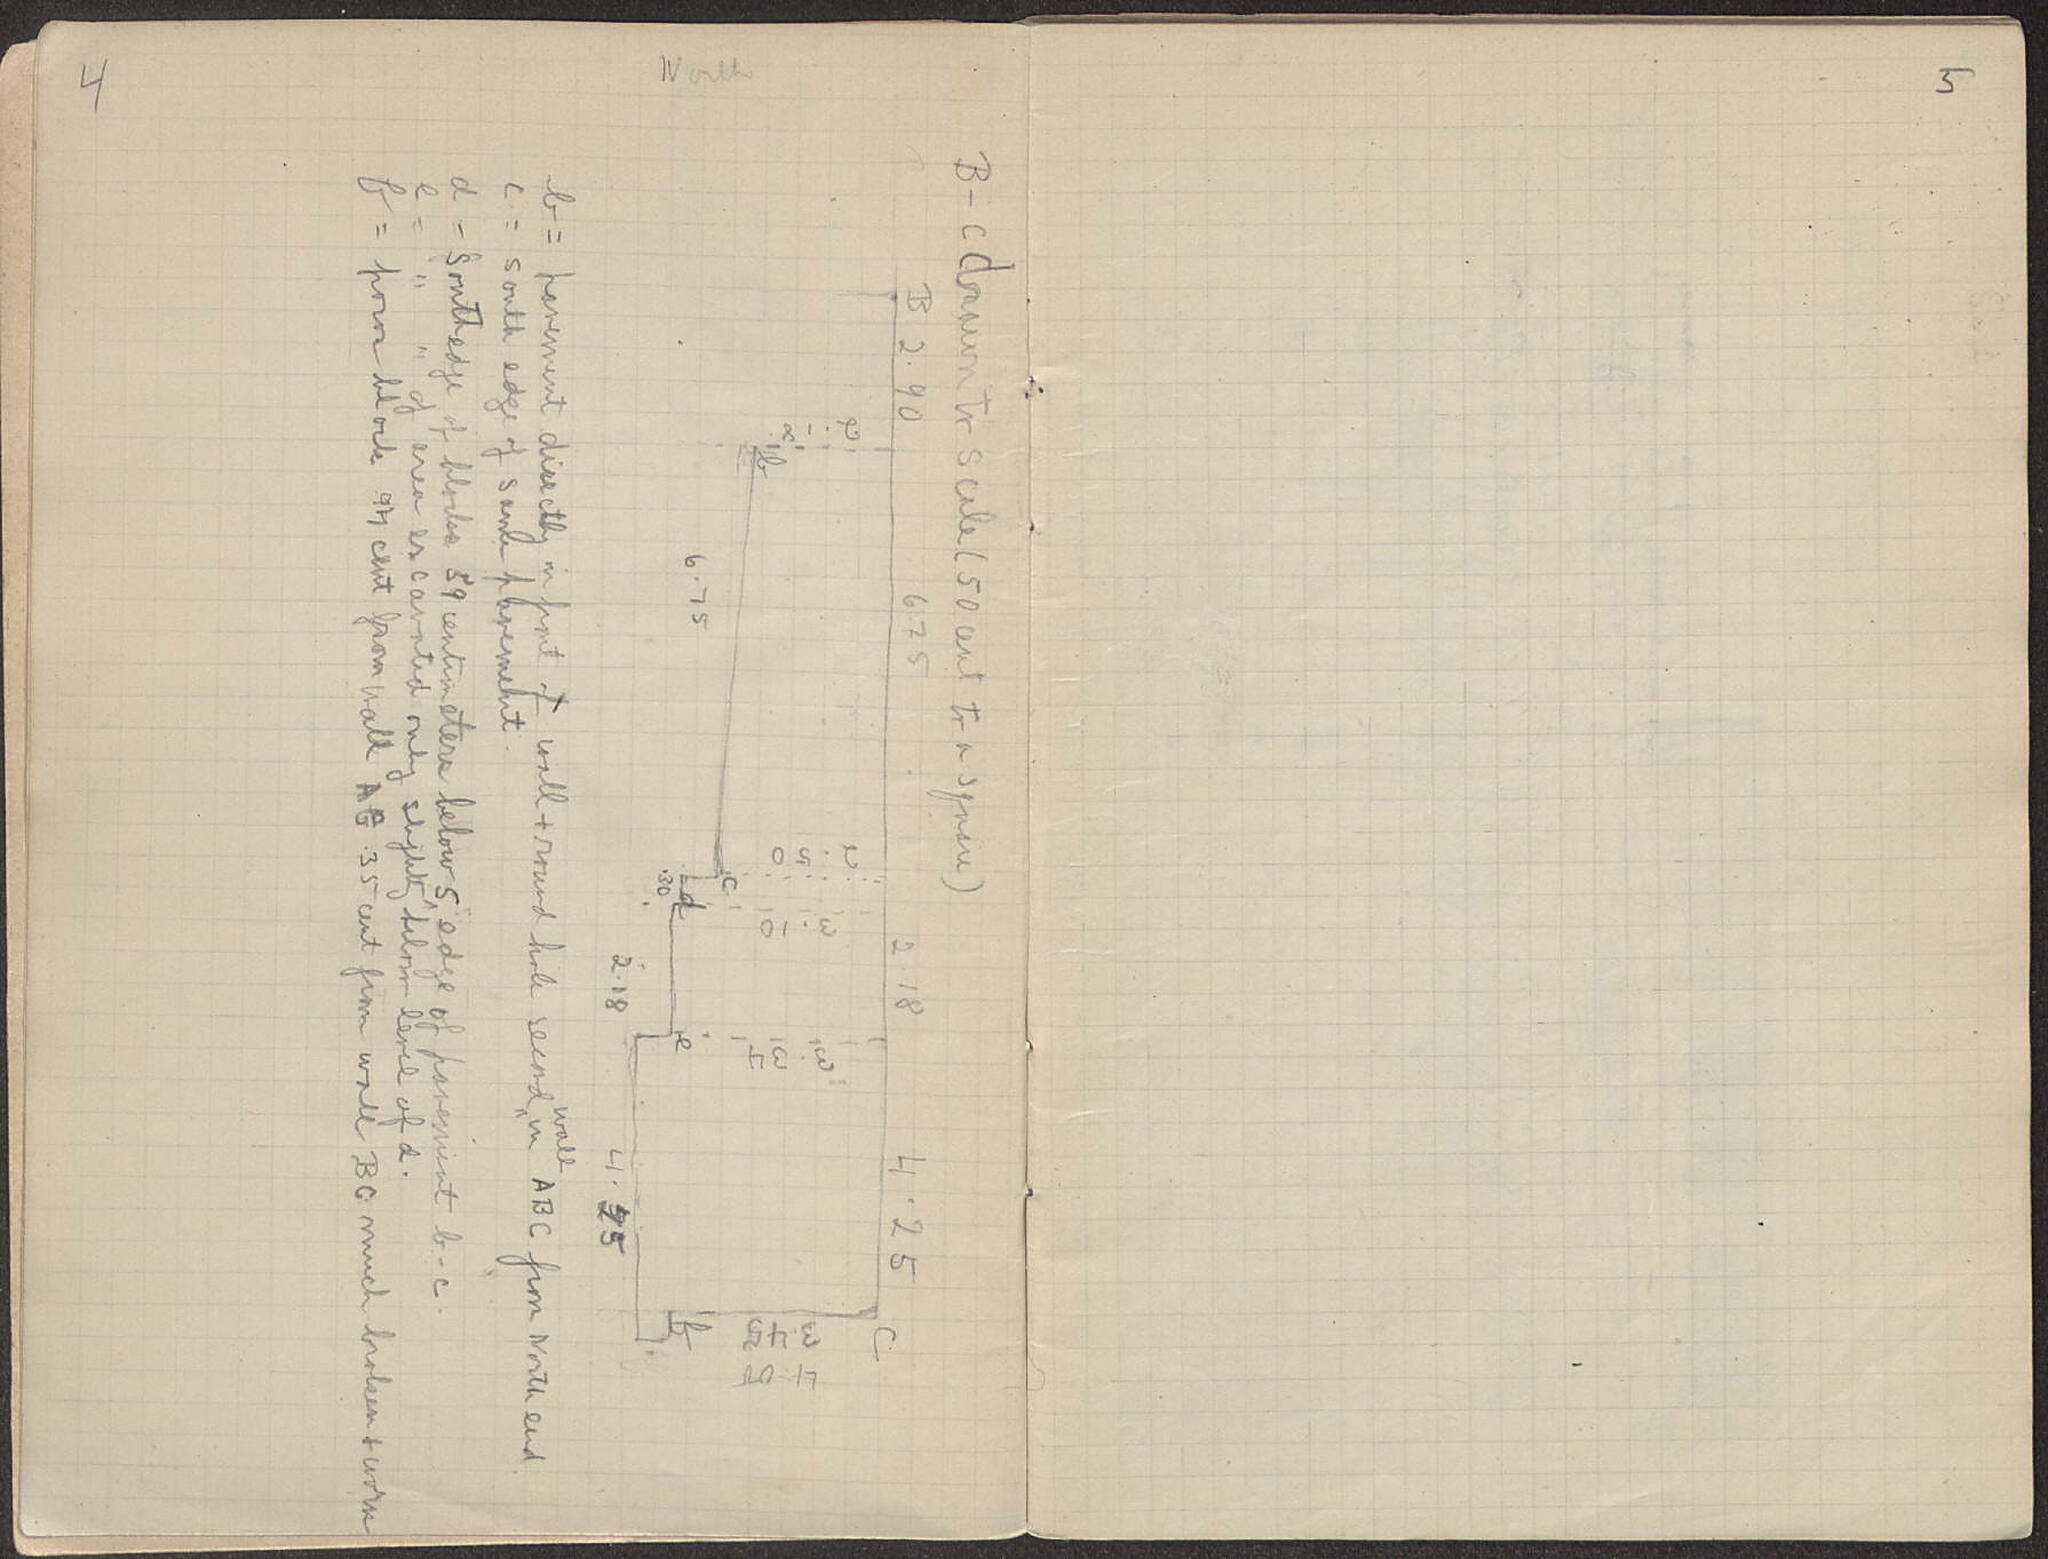 4
North
B-C drawn to scale (50 cent to a square)
B 2.90 6.75 2.18 4.25 C
2.18
2.50
3.10
3.34
3.45
4.5
b
c
d
e
f
6.75
.30
2.18
4.25
b = pavement directly in front of wall + round hole second wall in ABC from North end.
c = south edge of same pavement.
d = South edge of blocks 59 centimeters below S. edge of pavement b-c.
e = " " of area excavated only slightly below level of d.
f = poros block .94 cent from wall AB .35 cent from wall BC much broken + worn
5